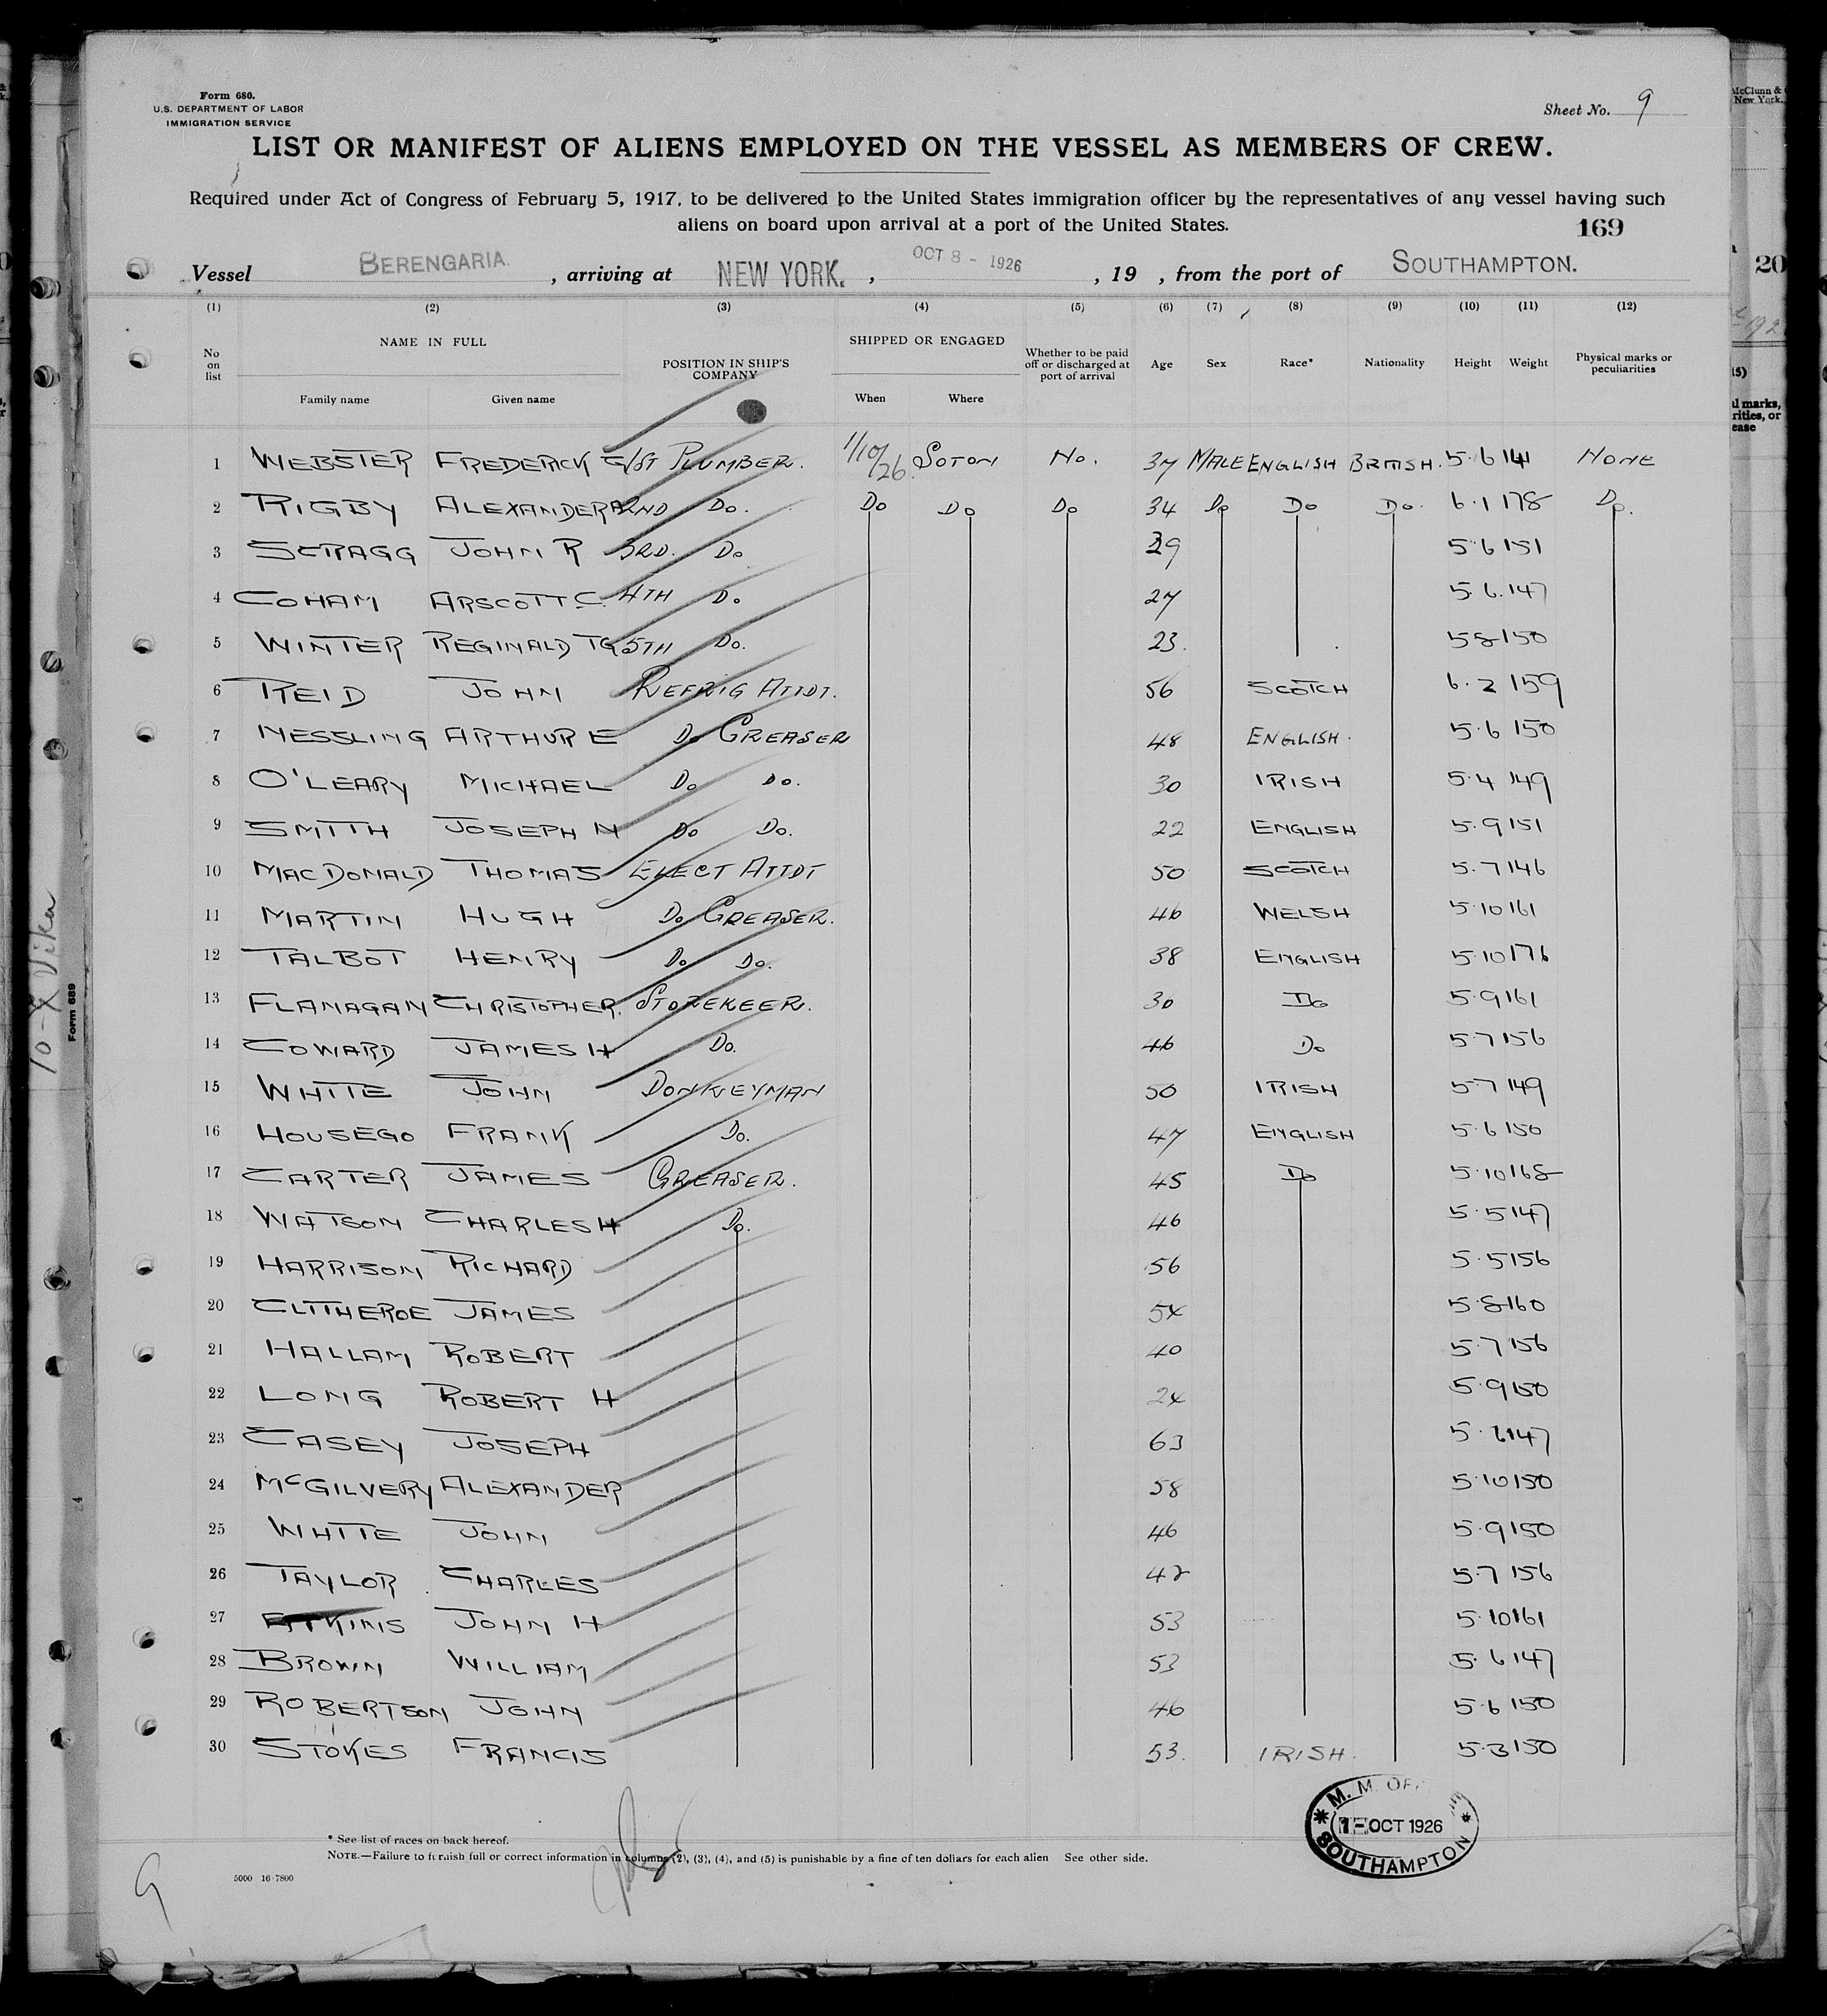 Form 680.
U.S. DEPARTMENT OF LABOR
IMMIGRATION SERVICE
Sheet No. 9
LIST OR MANIFEST OF ALIENS EMPLOYED ON THE VESSEL AS MEMBERS OF CREW.
Required under Act of Congress of February 5, 1917, to be delivered to the United States immigration officer by the representatives of any vessel having such
aliens on board upon arrival at a port of the United States.
169
Vessel BERENGARIA. , arriving at NEW YORK. , OCT 8 - 1926 , 19 , from the port of SOUTHAMPTON.
(1) (2) (3) (4) (5) (6) (7) (8) (9) (10) (11) (12)
No on list NAME IN FULL Family name Given name POSITION IN SHIP'S COMPANY SHIPPED OR ENGAGED When Where Whether to be paid off or discharged at port of arrival Age Sex Race* Nationality Height Weight Physical marks or peculiarities
1 WEBSTER FREDERICK 1ST PLUMBER. 1/10/26 SOTON No. 37 MALE ENGLISH BRITISH. 5.6 141 NONE
2 RIGBY ALEXANDER 2ND Do. Do Do Do 34 Do Do Do. 6.1 178 Do.
3 SCRAGG JOHN R 3RD. Do 29 5.6 151
4 COHAM ARSCOTT C. 4TH Do 27 5.6. 147
5 WINTER REGINALD TG 5TH Do. 23. 5 8 150
6 REID JOHN REFRIG ATTDT. 56 SCOTCH 6.2 159
7 MESSLING ARTHUR E Do GREASER 48 ENGLISH. 5.6 150
8 O'LEARY MICHAEL Do Do. 30 IRISH 5.4 149
9 SMITH JOSEPH N Do Do. 22 ENGLISH 5.9 151
10 MACDONALD THOMAS ELECT ATTDT 50 SCOTCH 5.7 146
11 MARTIN HUGH Do GREASER. 46 WELSH 5.10 161
12 TALBOT HENRY Do Do. 38 ENGLISH 5.10 176
13 FLANAGAN CHRISTOPHER. STOREKEER. 30 Do 5.9 161
14 COWARD JAMES H Do. 46 Do 5.7 156
15 WHITE JOHN DONKEYMAN 50 IRISH 5.7 149
16 HOUSEGO FRANK Do. 47 ENGLISH 5.6 150
17 CARTER JAMES GREASER. 45 Do 5.10 168
18 WATSON CHARLES H Do. 46 5.5 147
19 HARRISON RICHARD 56 5.5 156
20 CLITHEROE JAMES 54 5.8 160
21 HALLAM ROBERT 40 5.7 156
22 LONG ROBERT H 24 5.9 150
23 CASEY JOSEPH 63 5. 147
24 McGILVERY ALEXANDER 58 5.10 150
25 WHITE JOHN 46 5.9 150
26 TAYLOR CHARLES 42 5.7 156
27 ATKINS JOHN H 53 5.10 161
28 BROWN WILLIAM 53 5.6 147
29 ROBERTSON JOHN 46 5.6 150
30 STOKES FRANCIS 53. IRISH. 5.3 150
M. M. OF
1 - OCT 1926
SOUTHAMPTON
* See list of races on back hereof.
NOTE.—Failure to furnish full or correct information in columns (2), (3), (4), and (5) is punishable by a fine of ten dollars for each alien See other side.
5000 16-7800
9
Form 689
McClunn &
New York.
20